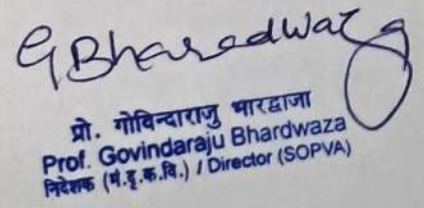 GBharadwaza
प्रो. गोविन्दाराजु भारद्वाजा
Prof. Govindaraju Bhardwaza
निदेशक (मं.दृ.क.वि.) / Director (SOPVA)